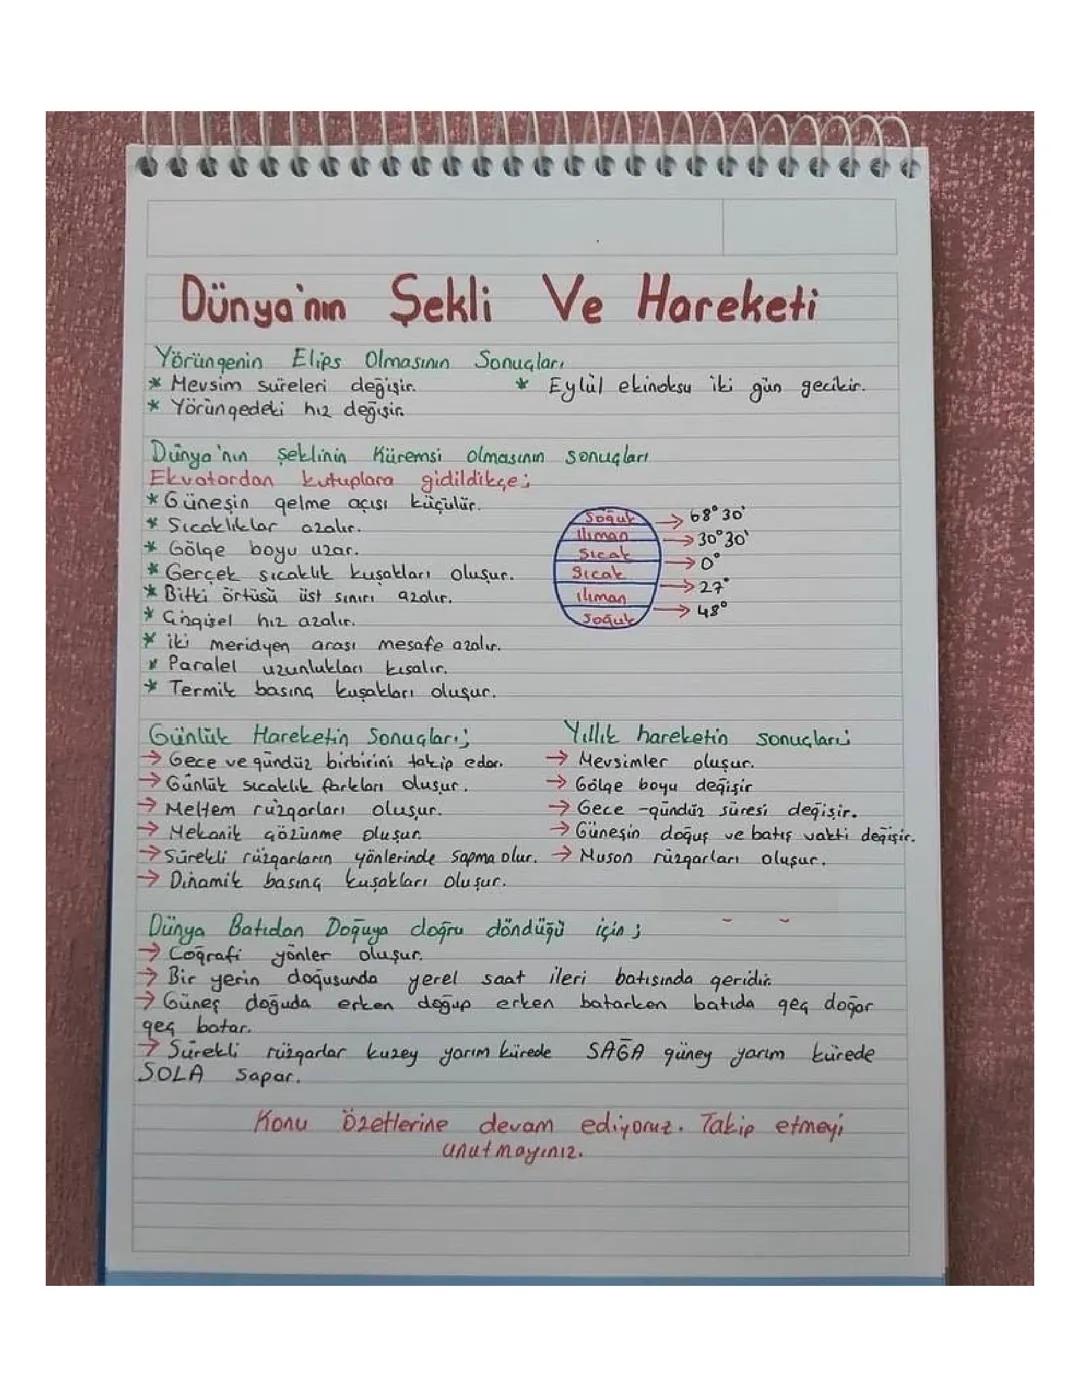 Dünya'nın Şekli Ve Hareketi
Yörüngenin Elips Olmasının Sonuçları
* Mevsim süreleri değişir.
* Eylül ekinoksu iki gün gecikir.
* Yörüngedeki hız değişir.
Dünya'nın şeklinin Küremsi olmasının sonuçları
Ekvatordan kutuplara gidildikçe;
* Güneşin gelme açısı küçülür.
* Sıcaklıklar azalır.
* Gölge boyu uzar.
* Gerçek sıcaklık kuşakları oluşur.
* Bitki örtüsü üst sınırı azalır.
* Çizgisel hız azalır.
* iki meridyen arası mesafe azalır.
* Paralel uzunlukları kısalır.
* Termik basınç kuşakları oluşur.
Soğuk → 68° 30'
ılıman → 30° 30'
Sıcak → 0°
Sıcak → 27°
ılıman → 48°
Soğuk
Günlük Hareketin Sonuçları;
→ Gece ve gündüz birbirini takip eder.
→ Günlük sıcaklık farkları oluşur.
→ Meltem rüzgarları oluşur.
→ Mekanik çözünme oluşur.
→ Sürekli rüzgarların yönlerinde sapma olur.
→ Dinamik basınç kuşakları oluşur.
Yıllık hareketin sonuçları;
→ Mevsimler oluşur.
→ Gölge boyu değişir
→ Gece -gündüz süresi değişir.
→ Güneşin doğuş ve batış vakti değişir.
→ Muson rüzgarları oluşur.
Dünya Batıdan Doğuya doğru döndüğü için;
→ Coğrafi yönler oluşur.
→ Bir yerin doğusunda yerel saat ileri batısında geridir.
→ Güneş doğuda erken doğup erken batarken batıda geç doğar
geç batar.
→ Sürekli rüzgarlar kuzey yarım kürede SAĞA güney yarım kürede
SOLA sapar.
Konu özetlerine devam ediyoruz. Takip etmeyi
unutmayınız.